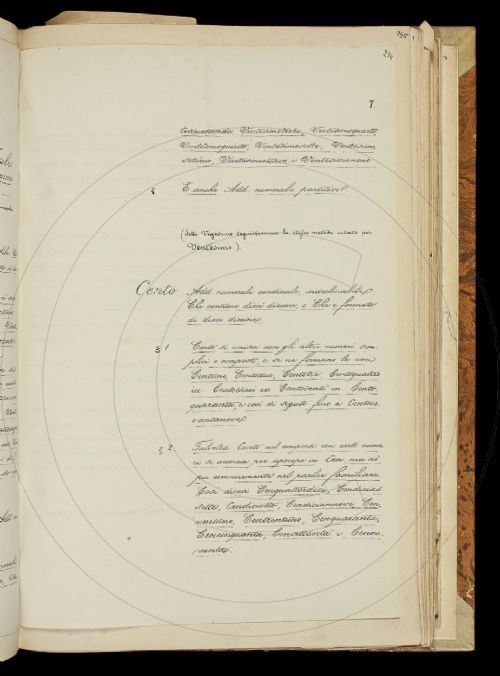 235
234
7
Ventesimoterzo, Ventesimoquarto,
Ventesimoquinto, Ventesimosesto, Ventesimo
settimo, Ventesimottavo e Ventesimonono
§ E anche Add. numerale partitivo.
(Sotto Vigesimo seguiteremo lo stesso metodo usato per
Ventesimo).
Cento Add. numerale cardinale, indeclinabile,
Che contiene dieci decine, o Che è formato
di dieci decine.
§ 1 Cento si unisce con gli altri numeri sem
plici o composti, e se ne formano le voci
Centuno, Centodue, Centotrè, Centoquattro
ec. Centodieci ec. Centoventi ec. Cento
quaranta, e così di seguito fino a Centono
vantanove.
§ 2 Talvolta Cento nel comporsi con certi nume
ri si accorcia per apocope in Cen, ma ciò
più comunemente nel parlar familiare.
Così dicesi Cenquattordici, Cendicias
sette, Cendiciotto, Cendiciannove, Cen
ventuno, Centrentuno, Cenquaranta,
Cencinquanta, Censettanta e Cenno
vanta.